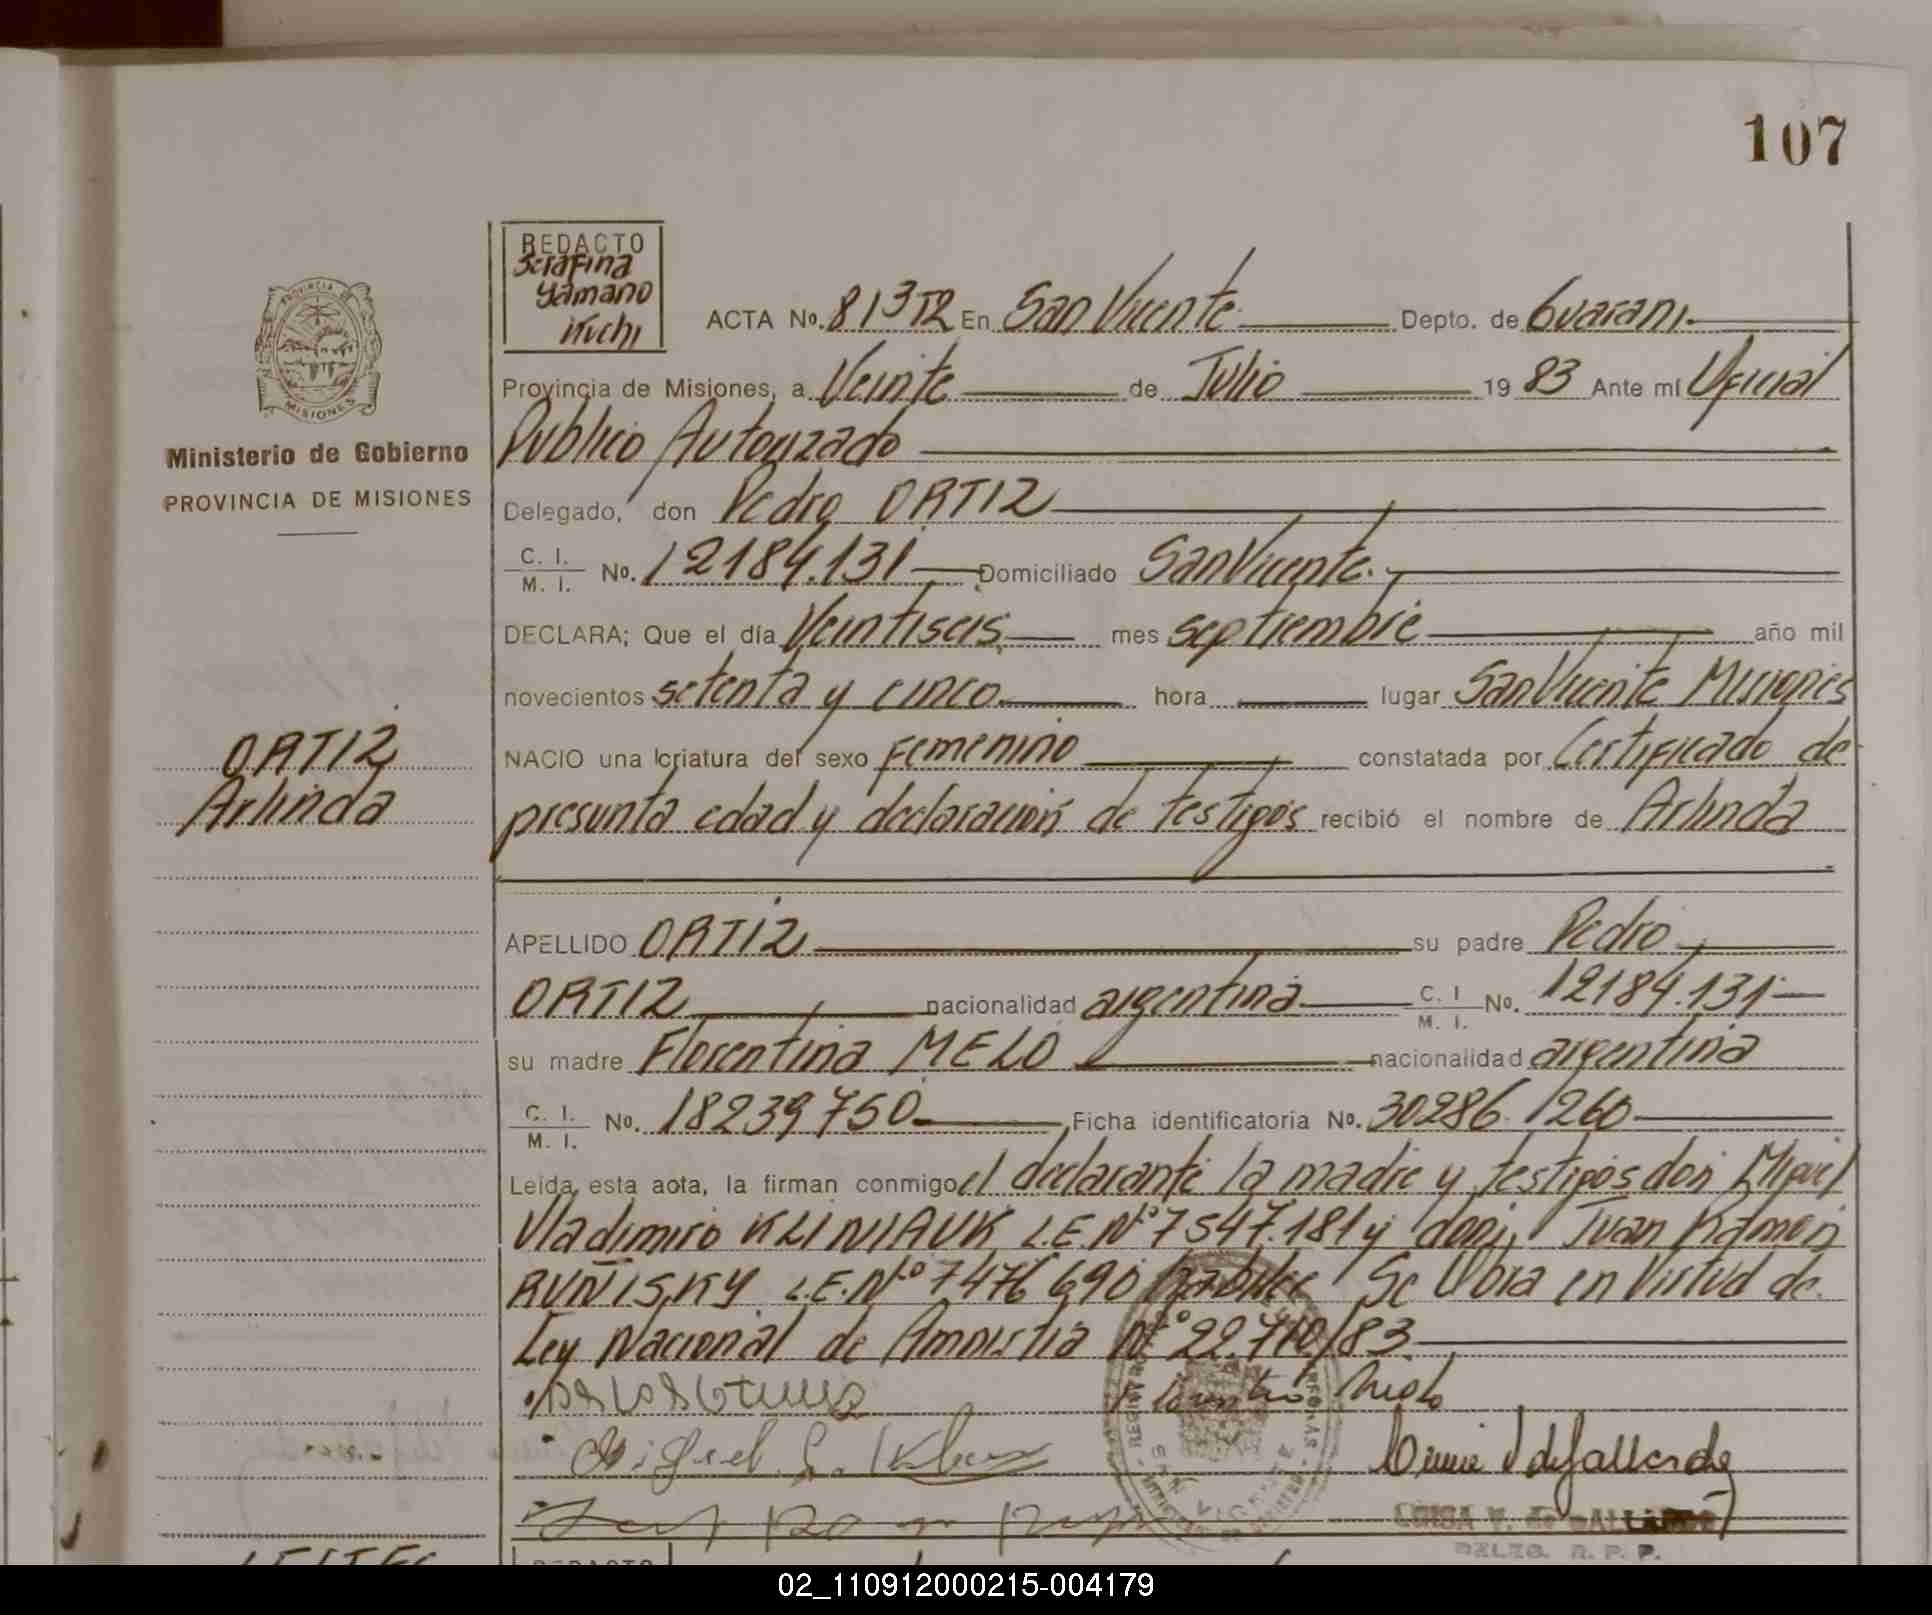 107
REDACTO
Serafina
Yamano
Kuchi
PROVINCIA DE
MISIONES
Ministerio de Gobierno
PROVINCIA DE MISIONES
ORTIZ
Arlinda
ACTA No. 813 T2 En San Vicente Depto. de Guarani.
Provincia de Misiones, a Veinte de Julio 19 83 Ante mí Oficial
Publico Autorizado
Delegado, don Pedro ORTIZ
C. I. / M. I. No. 12184.131 Domiciliado San Vicente.
DECLARA; Que el día Veintiseis mes septiembre año mil
novecientos setenta y cinco hora lugar San Vicente Misiones
NACIO una criatura del sexo Femenino constatada por Certificado de
presunta edad y declaración de testigos recibió el nombre de Arlinda
APELLIDO ORTIZ su padre Pedro
ORTIZ nacionalidad argentina C. I. / M. I. No. 12184.131
su madre Florentina MELO nacionalidad argentina
C. I. / M. I. No. 18239750 Ficha identificatoria No. 30286.1260
Leída esta aota, la firman conmigo el declarante la madre y testigos don Miguel
Vladimiro KLINIAUK L.E.Nº 7547.181 y don, Juan Ramon
RUÑISKY L.E.Nº 7476690 Se labra en Virtud de
Ley Nacional de Amnistia Nº 22.710/83
Miguel
LUISA V. de GALLARDO
DELEG. R. P. P.
REDACTO
02_110912000215-004179